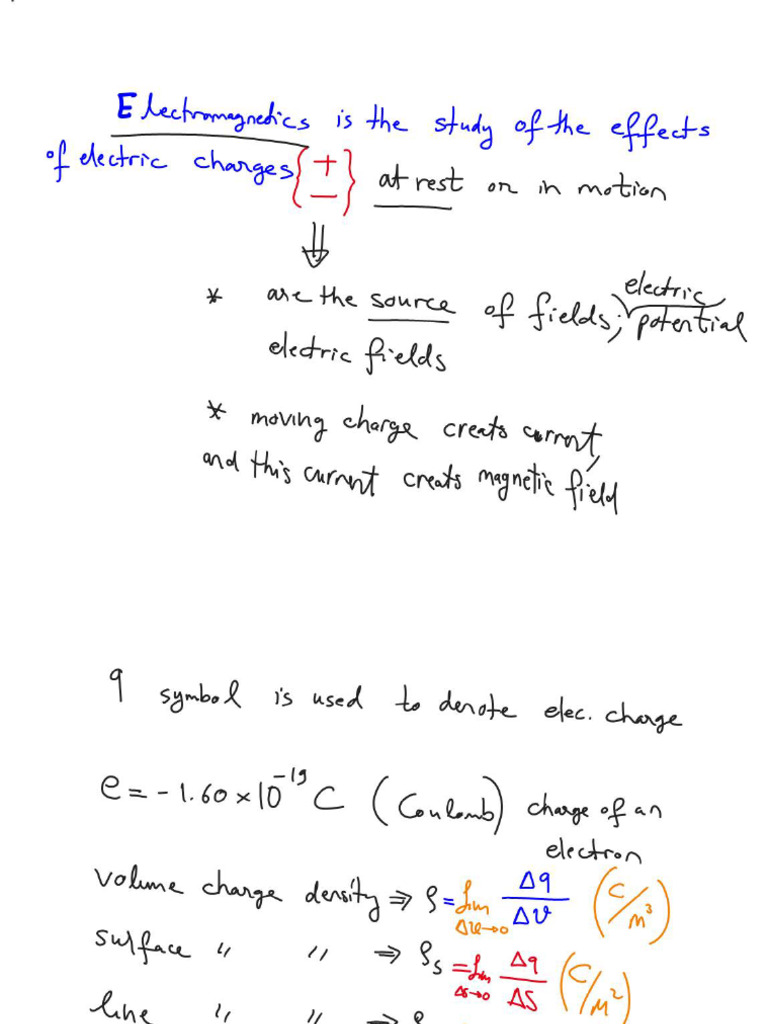 Electromagnetics is the study of the effects
of electric charges { + − } at rest or in motion
⇓
* are the source of fields; electric potential
electric fields
* moving charge creats current,
and this current creats magnetic field
q symbol is used to denote elec. charge
e = -1.60 × 10⁻¹⁹ C (Coulomb) charge of an
electron
volume charge density ⇒ ρ = lim Δv→0 Δq/Δv (C/m³)
surface " " ⇒ ρs = lim Δs→0 Δq/ΔS (C/m²)
line " " ⇒ ρ